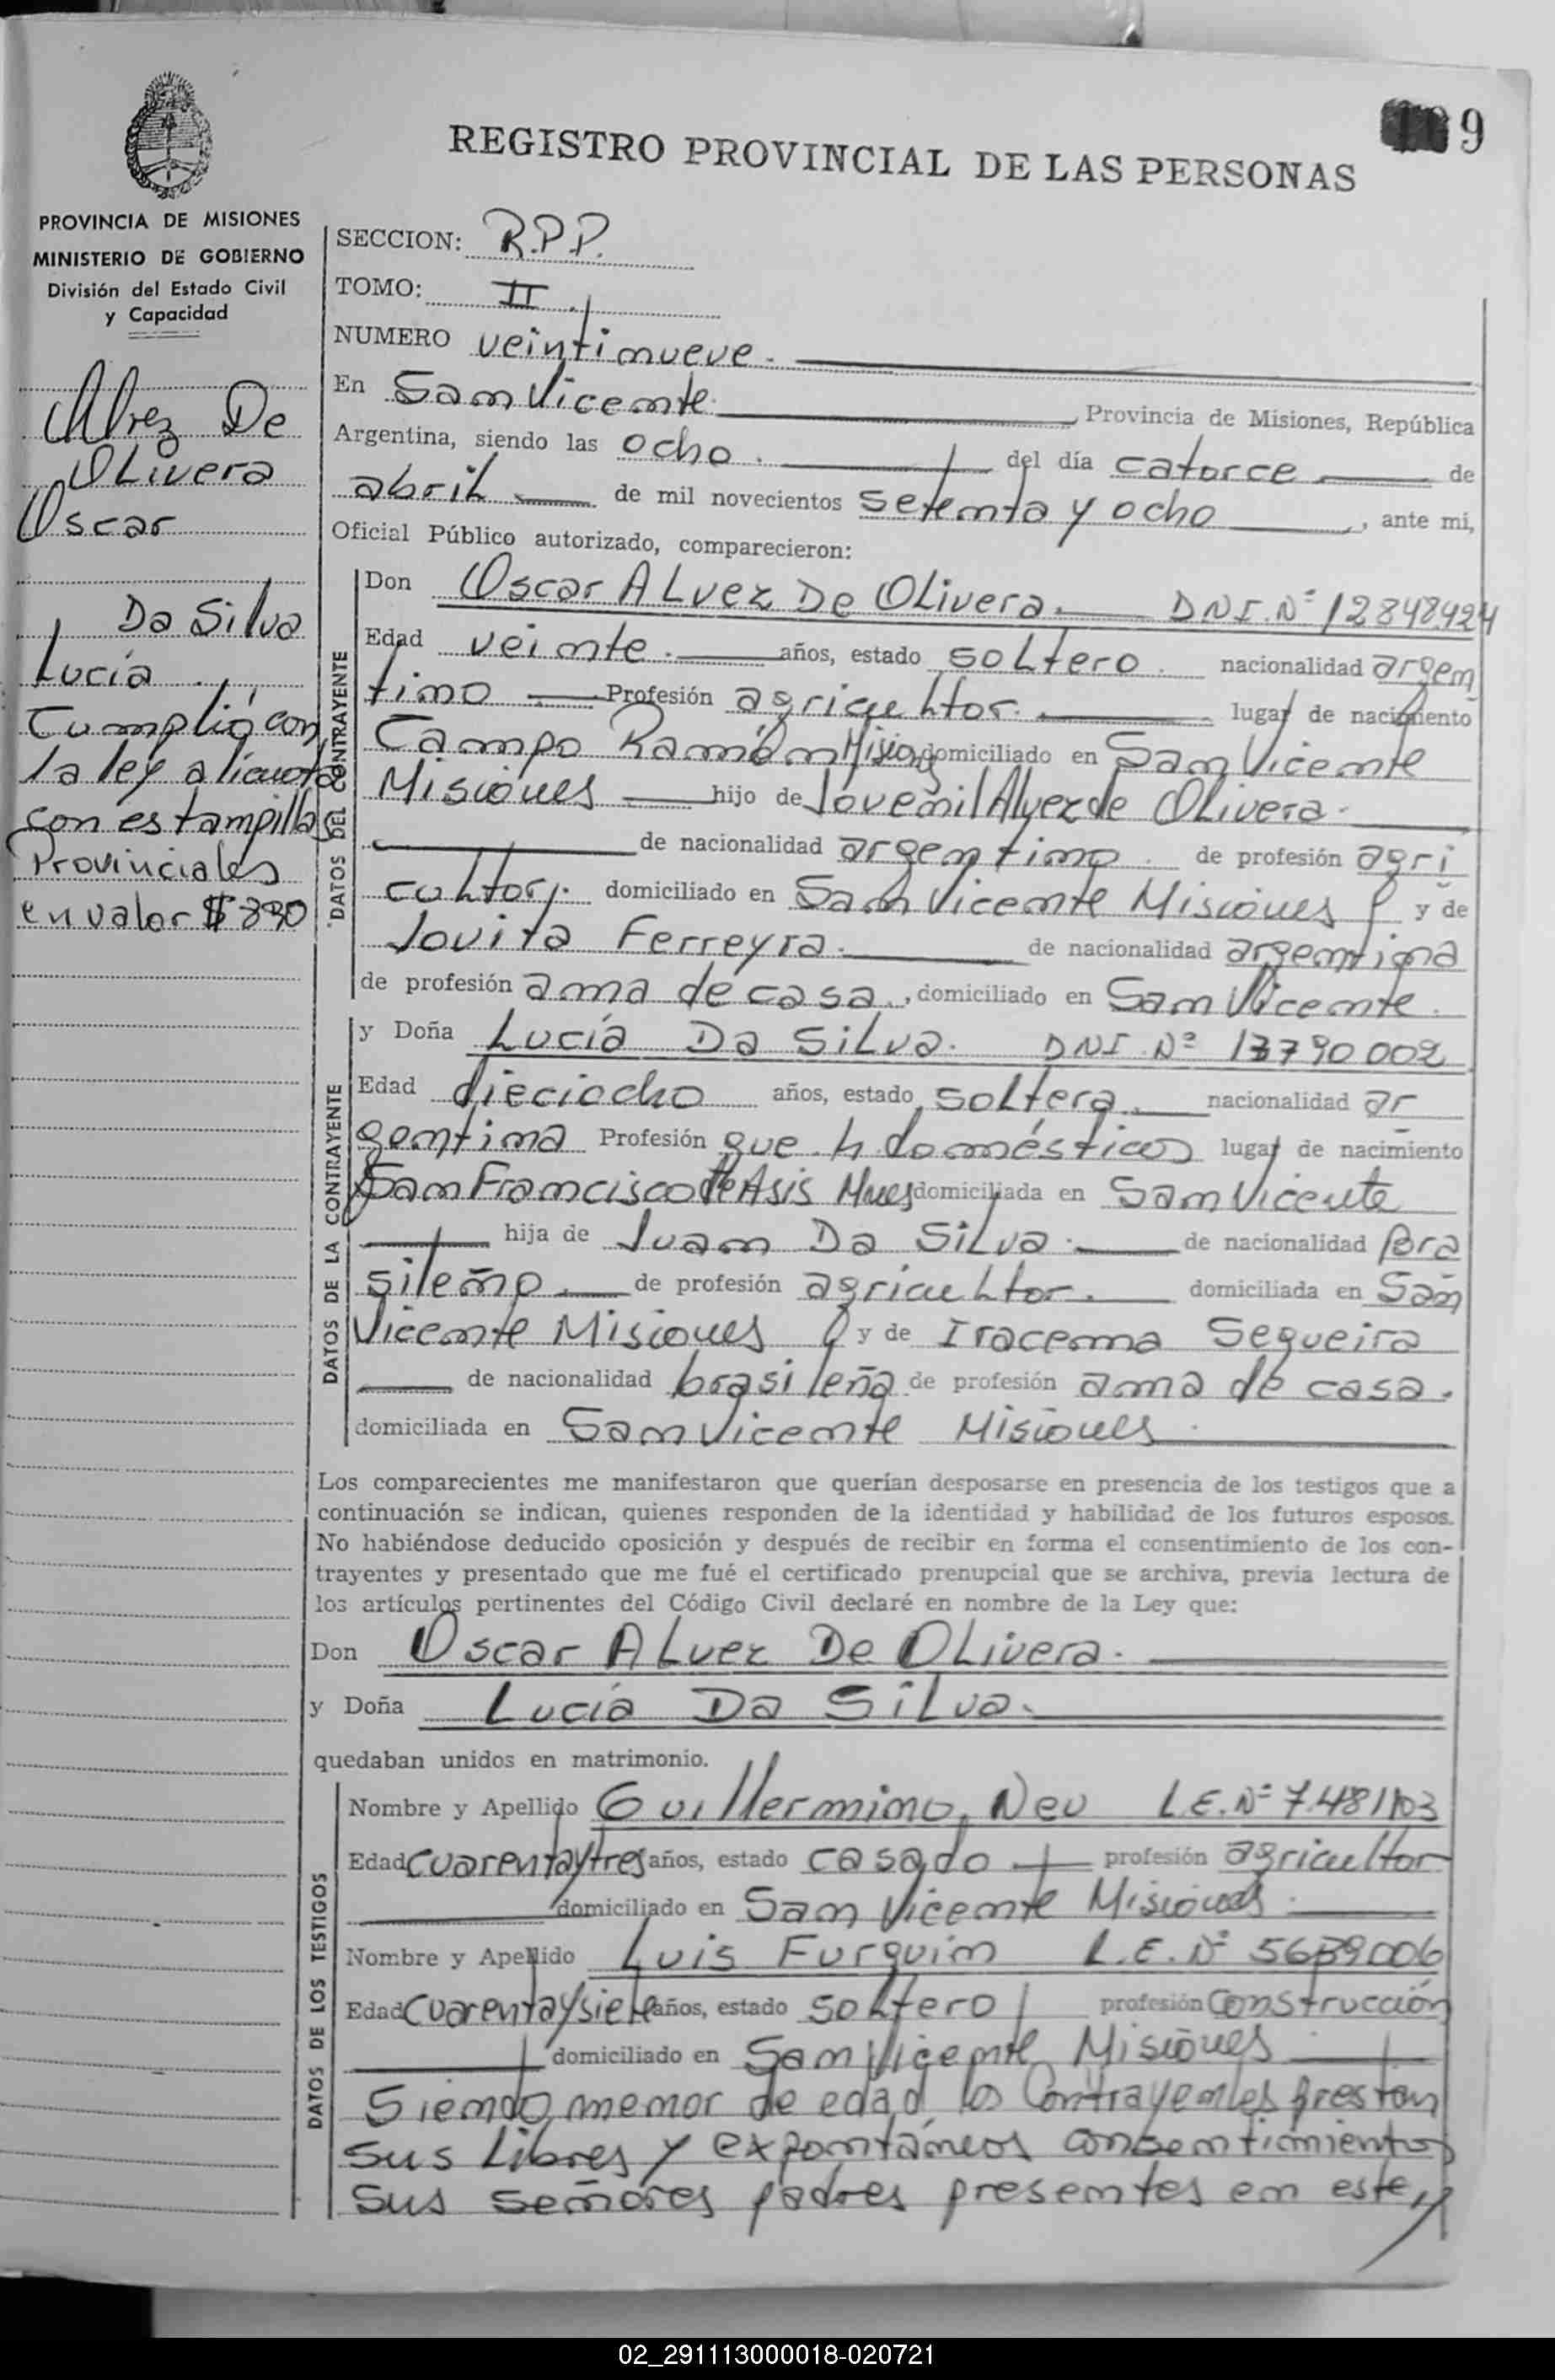 9
REGISTRO PROVINCIAL DE LAS PERSONAS
PROVINCIA DE MISIONES
MINISTERIO DE GOBIERNO
División del Estado Civil
y Capacidad
Alvez De
Olivera
Oscar
Da Silva
Lucía
Cumplió con
la ley alícuota
con estampillas
Provinciales
en valor $ 890
SECCION: R.P.P.
TOMO: II.
NUMERO veintinueve.
En San Vicente. Provincia de Misiones, República
Argentina, siendo las ocho. del día catorce de
abril de mil novecientos setenta y ocho, ante mi,
Oficial Público autorizado, comparecieron:
DATOS DEL CONTRAYENTE
Don Oscar Alvez De Olivera. DNI. Nº 12848424
Edad veinte. años, estado soltero. nacionalidad argen
tino Profesión agricultor. lugar de nacimiento
Campo Ramón Misiones domiciliado en San Vicente
Misiones hijo de Jovenil Alvez de Olivera.
de nacionalidad argentino. de profesión agri
cultor. domiciliado en San Vicente Misiones y de
Jovita Ferreyra. de nacionalidad argentina
de profesión ama de casa., domiciliado en San Vicente.
DATOS DE LA CONTRAYENTE
y Doña Lucía Da Silva. DNI. Nº 13790002
Edad dieciocho años, estado soltera. nacionalidad ar
gentina Profesión que h. domésticos lugar de nacimiento
San Francisco de Asis Mnes domiciliada en San Vicente
hija de Juan Da Silva. de nacionalidad Bra
sileño. de profesión agricultor. domiciliada en San
Vicente Misiones y de Iracema Sequeira
de nacionalidad brasileña de profesión ama de casa.
domiciliada en San Vicente Misiones.
Los comparecientes me manifestaron que querían desposarse en presencia de los testigos que a
continuación se indican, quienes responden de la identidad y habilidad de los futuros esposos.
No habiéndose deducido oposición y después de recibir en forma el consentimiento de los con-
trayentes y presentado que me fué el certificado prenupcial que se archiva, previa lectura de
los artículos pertinentes del Código Civil declaré en nombre de la Ley que:
Don Oscar Alvez De Olivera.
y Doña Lucía Da Silva.
quedaban unidos en matrimonio.
DATOS DE LOS TESTIGOS
Nombre y Apellido Guillermino Neu L.E. Nº 7.481103
Edad cuarenta y tres años, estado casado profesión agricultor
domiciliado en San Vicente Misiones.
Nombre y Apellido Luis Furquim L.E. Nº 5639006
Edad cuarenta y siete años, estado soltero profesión Construcción
domiciliado en San Vicente Misiones
Siendo menor de edad los Contrayentes prestan
sus libres y expontáneos consentimientos
sus señores padres presentes en este //
02_291113000018-020721